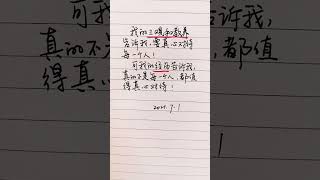 我的三观和教养
告诉我，要真心对待
每一个人！
可我的经历告诉我，
真的不是每一个人，都值
得真心对待！
2021.7.1